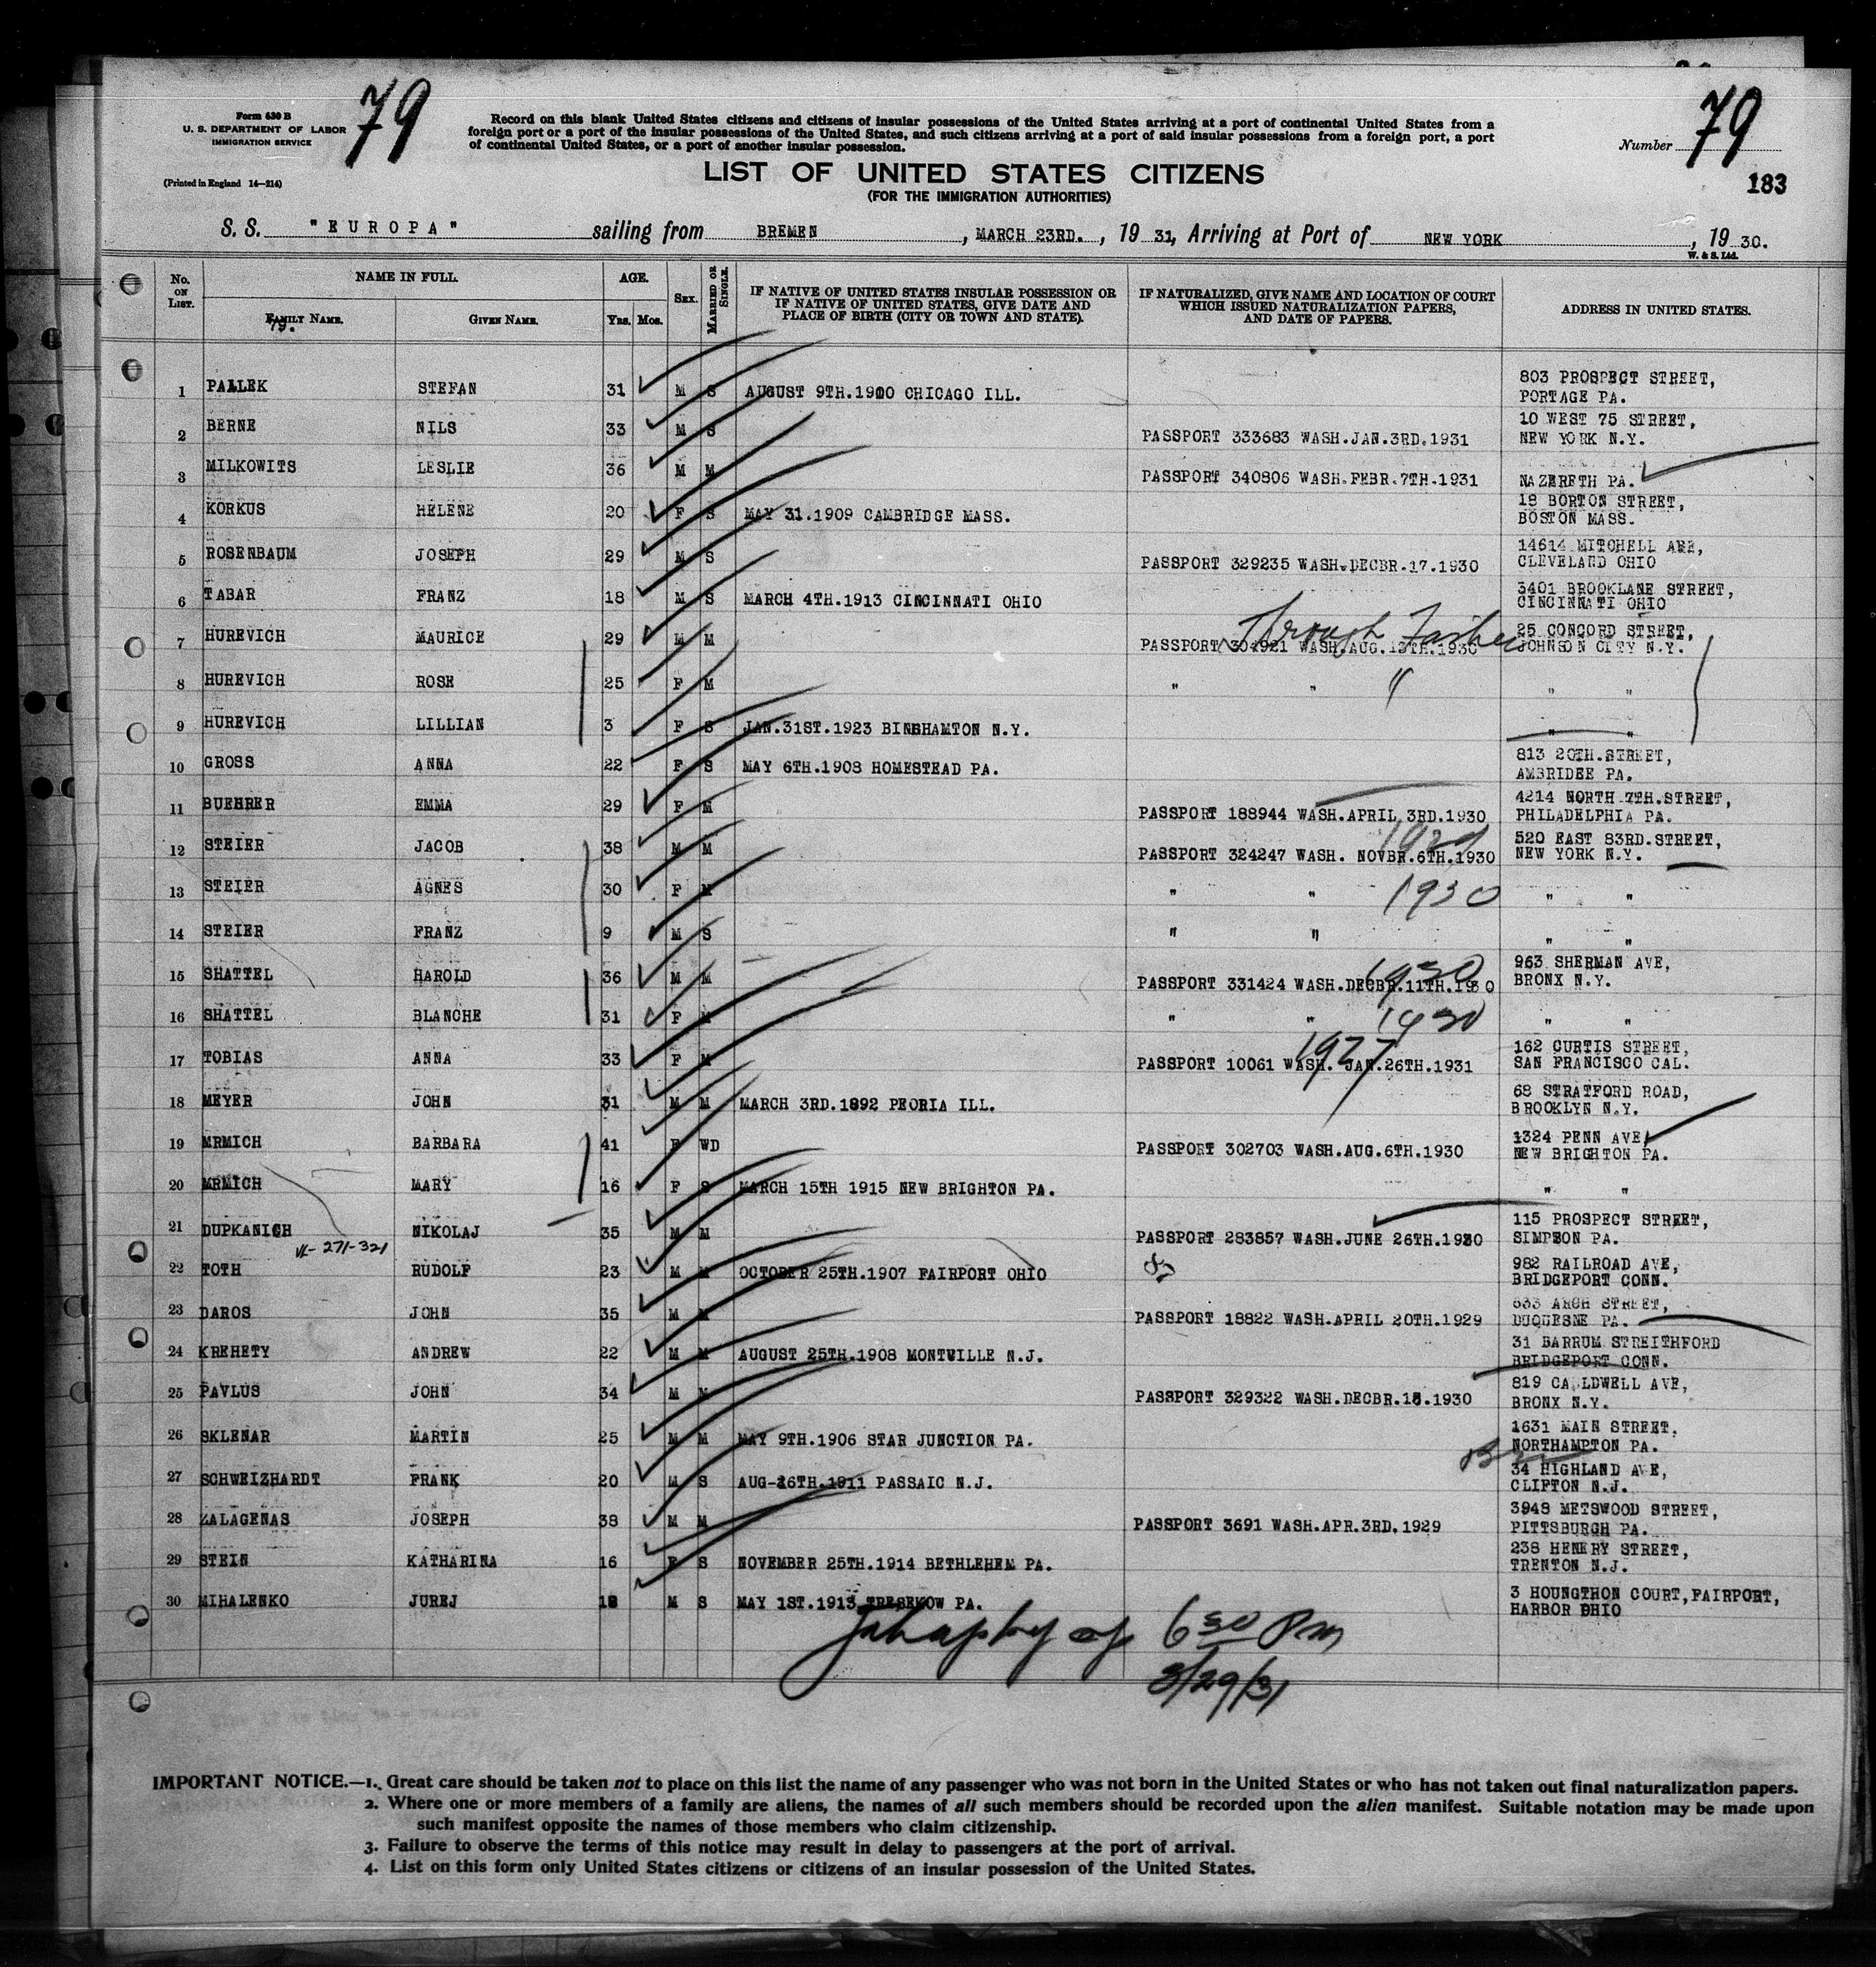 Form 630 B
U. S. DEPARTMENT OF LABOR
IMMIGRATION SERVICE
(Printed in England 14—214)
79
Record on this blank United States citizens and citizens of insular possessions of the United States arriving at a port of continental United States from a
foreign port or a port of the insular possessions of the United States, and such citizens arriving at a port of said insular possessions from a foreign port, a port
of continental United States, or a port of another insular possession.
Number 79
183
LIST OF UNITED STATES CITIZENS
(FOR THE IMMIGRATION AUTHORITIES)
S. S. "EUROPA" sailing from BREMEN, MARCH 23RD., 19 31, Arriving at Port of NEW YORK, 19 30.
W. & S. Ltd.
No. ON LIST. NAME IN FULL. FAMILY NAME. GIVEN NAME. AGE. Yrs. Mos. SEX. MARRIED OR SINGLE.
IF NATIVE OF UNITED STATES INSULAR POSSESSION OR
IF NATIVE OF UNITED STATES, GIVE DATE AND
PLACE OF BIRTH (CITY OR TOWN AND STATE).
IF NATURALIZED, GIVE NAME AND LOCATION OF COURT
WHICH ISSUED NATURALIZATION PAPERS,
AND DATE OF PAPERS.
ADDRESS IN UNITED STATES.
79.
1 PALLEK STEFAN 31 M S AUGUST 9TH.1900 CHICAGO ILL. 803 PROSPECT STREET,
PORTAGE PA.
2 BERNE NILS 33 M S PASSPORT 333683 WASH.JAN.3RD.1931 10 WEST 75 STREET,
NEW YORK N.Y.
3 MILKOWITS LESLIE 36 M M PASSPORT 340806 WASH.FEBR.7TH.1931 NAZERETH PA.
4 KORKUS HELENE 20 F S MAY 31.1909 CAMBRIDGE MASS. 18 BORTON STREET,
BOSTON MASS.
5 ROSENBAUM JOSEPH 29 M S PASSPORT 329235 WASH.DECBR.17.1930 14614 MITCHELL AVE,
CLEVELAND OHIO
6 TABAR FRANZ 18 M S MARCH 4TH.1913 CINCINNATI OHIO 3401 BROOKLANE STREET,
CINCINNATI OHIO
Through Father
7 HUREVICH MAURICE 29 M M PASSPORT 304921 WASH.AUG.13TH.1930 25 CONCORD STREET,
JOHNSON CITY N.Y.
8 HUREVICH ROSE 25 F M " " " " "
9 HUREVICH LILLIAN 3 F S JAN.31ST.1923 BINGHAMTON N.Y. " "
10 GROSS ANNA 22 F S MAY 6TH.1908 HOMESTEAD PA. 813 20TH.STREET,
AMBRIDEE PA.
11 BUEHRER EMMA 29 F M PASSPORT 188944 WASH.APRIL 3RD.1930 4214 NORTH 7TH.STREET,
PHILADELPHIA PA.
12 STEIER JACOB 38 M M PASSPORT 324247 WASH. NOVBR.6TH.1930 520 EAST 83RD.STREET,
NEW YORK N.Y.
13 STEIER AGNES 30 F M " " 1930 " "
14 STEIER FRANZ 9 M S " " " "
15 SHATTEL HAROLD 36 M M PASSPORT 331424 WASH.DECBR.11TH.1930 1930 963 SHERMAN AVE,
BRONX N.Y.
16 SHATTEL BLANCHE 31 F M " " 1930 " "
17 TOBIAS ANNA 33 F M PASSPORT 10061 WASH. JAN.26TH.1931 1927 162 CURTIS STREET,
SAN FRANCISCO CAL.
18 MEYER JOHN 31 M M MARCH 3RD.1892 PEORIA ILL. 68 STRATFORD ROAD,
BROOKLYN N.Y.
19 MRMICH BARBARA 41 F WD PASSPORT 302703 WASH.AUG.6TH.1930 1324 PENN AVE,
NEW BRIGHTON PA.
20 MRMICH MARY 16 F S MARCH 15TH 1915 NEW BRIGHTON PA. " "
21 DUPKANICH NIKOLAJ 35 M M PASSPORT 283857 WASH.JUNE 26TH.1930 115 PROSPECT STREET,
SIMPSON PA.
VL-271-321
22 TOTH RUDOLF 23 M M OCTOBER 25TH.1907 FAIRPORT OHIO 982 RAILROAD AVE,
BRIDGEPORT CONN.
23 DAROS JOHN 35 M M PASSPORT 18822 WASH.APRIL 20TH.1929 533 ARCH STREET,
DUQUESNE PA.
24 KREHETY ANDREW 22 M M AUGUST 25TH.1908 MONTVILLE N.J. 31 BARRUM STREITHFORD
BRIDGEPORT CONN.
25 PAVLUS JOHN 34 M M PASSPORT 329322 WASH.DECBR.18.1930 819 CALDWELL AVE,
BRONX N.Y.
26 SKLENAR MARTIN 25 M M MAY 9TH.1906 STAR JUNCTION PA. 1631 MAIN STREET,
NORTHAMPTON PA.
27 SCHWEIZHARDT FRANK 20 M S AUG-26TH.1911 PASSAIC N.J. 34 HIGHLAND AVE,
CLIFTON N.J.
28 ZALAGENAS JOSEPH 38 M M PASSPORT 3691 WASH.APR.3RD.1929 3948 METSWOOD STREET,
PITTSBURGH PA.
29 STEIN KATHARINA 16 F S NOVEMBER 25TH.1914 BETHLEHEM PA. 238 HENERY STREET,
TRENTON N.J.
30 MIHALENKO JUREJ 18 M S MAY 1ST.1913 TREBEKOW PA. 3 HOUNGTHON COURT,FAIRPORT,
HARBOR OHIO
6 30 Pm
3/29/31
IMPORTANT NOTICE.—1. Great care should be taken not to place on this list the name of any passenger who was not born in the United States or who has not taken out final naturalization papers.
2. Where one or more members of a family are aliens, the names of all such members should be recorded upon the alien manifest. Suitable notation may be made upon
such manifest opposite the names of those members who claim citizenship.
3. Failure to observe the terms of this notice may result in delay to passengers at the port of arrival.
4. List on this form only United States citizens or citizens of an insular possession of the United States.